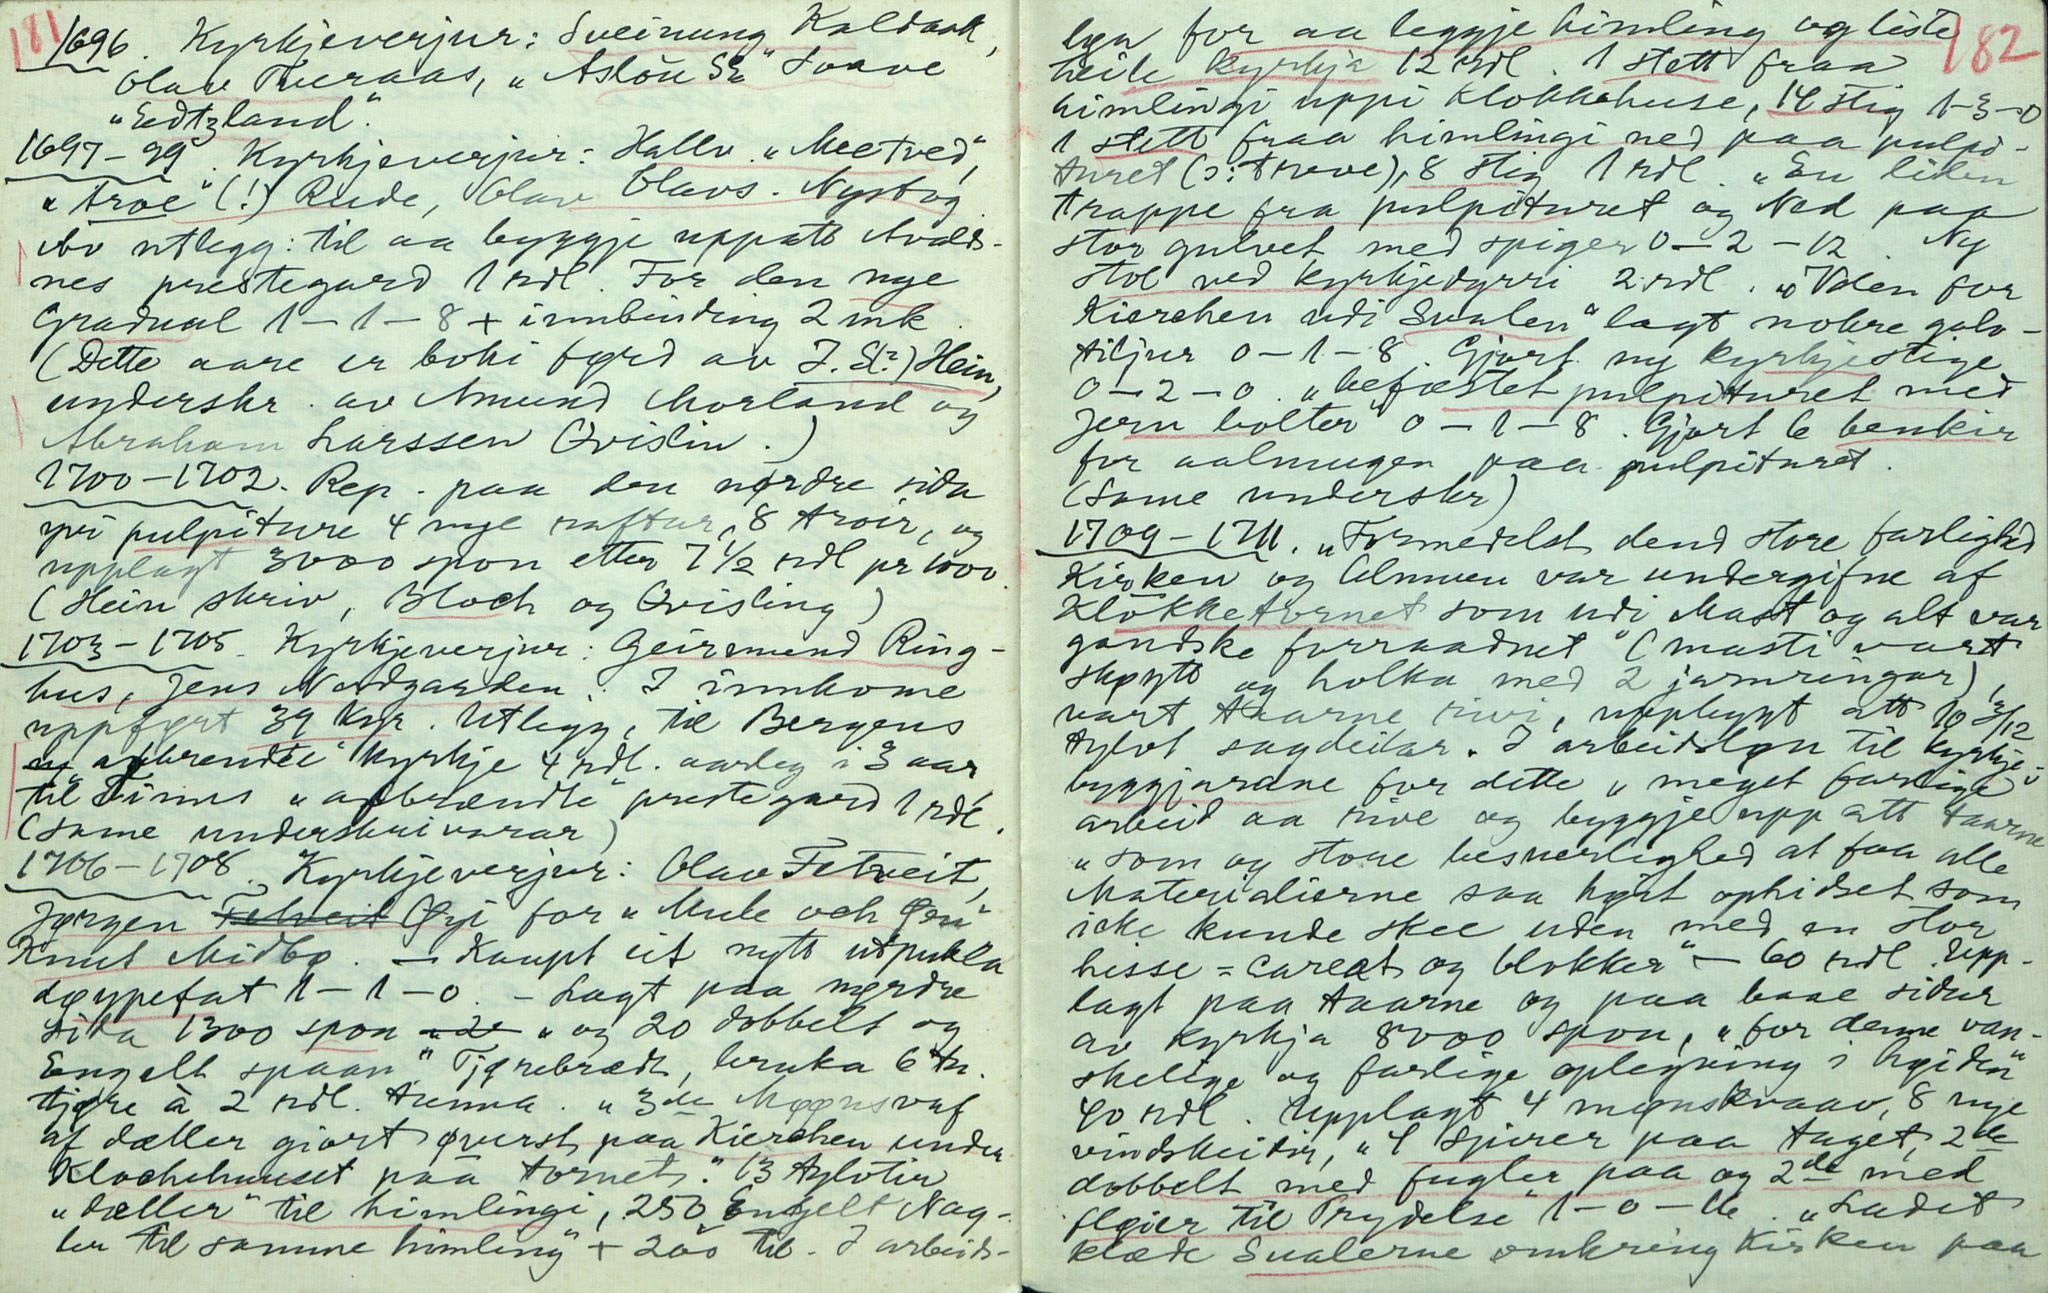 181
1696. Kyrkjeverjur: Sveinung Kaldaak,
Olav Tveraas, „Aslou Sr" Soave
„Eedtzland".
1697–99. Kyrkjeverjur: Hallv. „Meetved",
„Aroe" (!) Rude, Olav Olavs. Nystog.
Av utlegg: til aa byggje uppatt Avalds-
nes prestegard 1 rdl. For den nye
Gradual 1–1–8 + innbinding 2 mk.
(Dette aare er boki førd av J. S(?) Hein,
underskr. av Amund Morland og
Abraham Larssen Qvislin.)
1700–1702. Rep. paa den nørdre sida
yvi pulpiture 4 nye raftur, 8 troir, og
upplagt 3000 spon etter 7 1/2 rdl pr 1000.
(Hein skriv, Bloch og Qvisling)
1703–1705. Kyrkjeverjur: Geirmund Ring-
hus, Jens Nordgarden. I innkome
uppført 39 kyr. Utlegg, til Bergens
„afbrendte" kyrkje 4 rdl. aarleg i 3 aar,
til Finns „afbrændte" prestegard 1 rdl.
(Same underskrivarar)
1706–1708. Kyrkjeverjur: Olav Fetveit,
Jørgen Fetveit Øyi for „Mule och Øen"
Knut Midbø. – Kaupt eit nytt utpukla
døypefat 1–1–0. – Lagt paa nørdre
sida 1300 spon „og 20 dobbelt og
Engelt spaan" Tjørebrædt, bruka 6 tn.
tjøre à 2 rdl. tunna. „3de Møønsvaf
af dæller giort øverst paa Kierchen under
Klochehuuset paa tornet". 13 tylvtir
„dæller" til himlingi, 250 Engelt Nag-
ler til samme himling" + 200 til. I arbeids-
182
løn for aa leggje himling og liste
heile kyrkja 12 rdl. 1 stett fraa
himlingi uppi klokkehuse, 14 stig 1–3–0
1 stett fraa himlingi ned paa pulpi-
turet (ɔ: treve), 8 stig 1 rdl. „En liden
trappe fra pulpituret og Ned paa
stor gulvet med spiger 0–2–12. Ny
stol ved kyrkjedyrri 2 rdl. „Uden for
Kierchen udi Svalen" lagt nokre golv-
tiljur 0–1–8. Gjort ny kyrkjestige
0–2–0. „befæstet pulpituret med
Jern bolter" 0–1–8. Gjort 6 benkir
for aalmugen paa pulpituret.
(Same underskr)
1709–1711. „Formedelst dend store farlighed
Kirken og Almuen var undergifne af
Klokketornet som udi Mast og alt var
gandske forraadnet" (masti vart
skøytt og holka med 2 jarnringar),
vart taarne rivi, uppbygt att 10 3/12
tylvt sagdeilar. I arbeidsløn til kyrkje-
byggjarane for dette „meget farlige"
arbeid aa rive og byggje upp att taarne
„som og store besværlighed at faa alle
Materialierne saa høyt ophidset som
icke kunde skee uden med en stor
hisse=careat og blokker" – 60 rdl. Upp-
lagt paa taarne og paa baae sidur
av kyrkja 8000 spon, „for denne van-
skelige og farlige oplegning i høiden"
40 rdl. Upplagt 4 mønskraav, 8 nye
vindskeidir, „4 Spirer paa taget, 2de
dobbelt med fugler paa og 2de med
fløier til Prydelse" 1–0–16. „Ladet
klæde Svalerne omkring Kirken paa